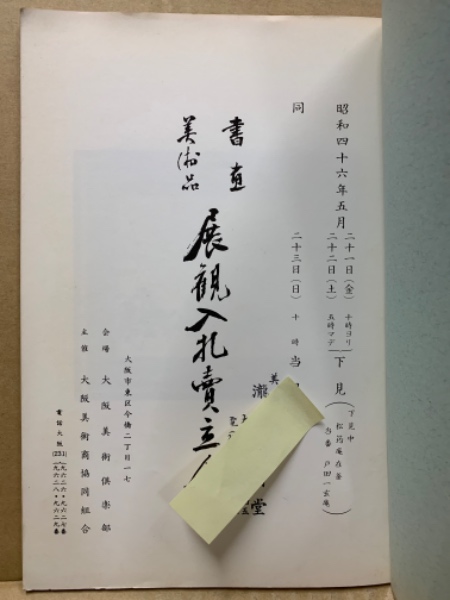 昭和四十六年五月
二十一日(金) 十時ヨリ
二十二日(土) 五時マデ
下見
下見中
松筠庵在釜
当番 戸田一玄庵
同
二十三日(日) 十時 当
美
瀧
堂
書画
美術品
展観入札賣立
大阪市東区今橋二丁目一七
会場 大阪美術倶楽部
主催 大阪美術商協同組合
電話大阪(231)
九六二六・九六二七番
九六二八・九六二九番